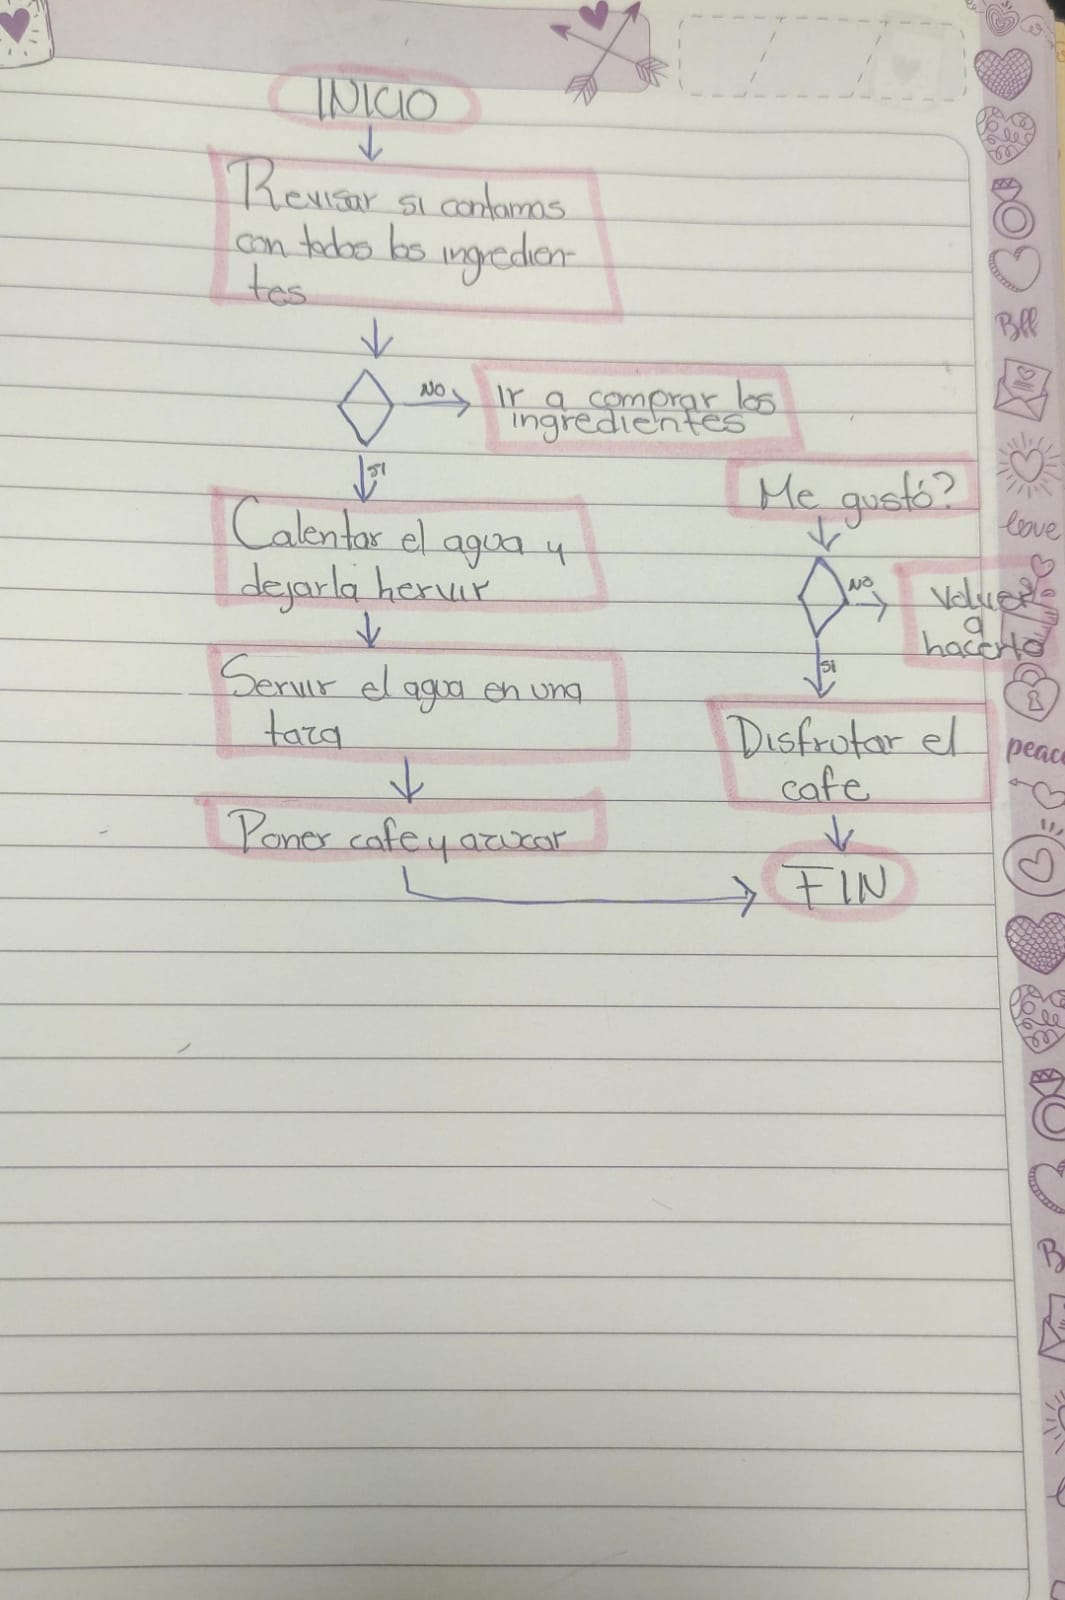 INICIO
Revisar si contamos
con todos los ingredien-
tes
NO
Ir a comprar los
ingredientes
SI
Calentar el agua y
dejarla hervir
Servir el agua en una
taza
Poner cafe y azucar
Me gustó?
NO
Volver
a
hacerlo
SI
Disfrutar el
cafe
FIN
Bff
love
peace
B